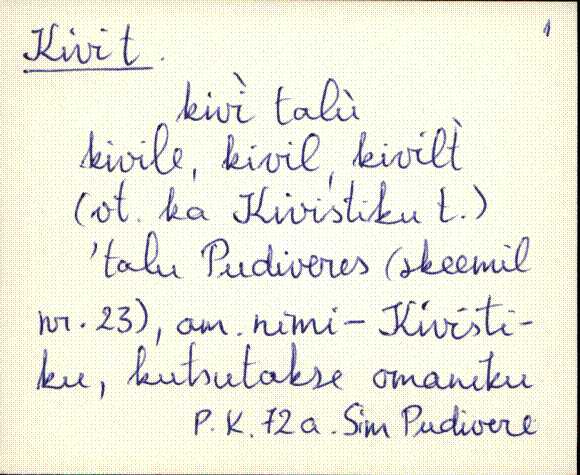 1
Kivi t.
kivì talù
kivile, kivil, kivilt̀
(vt. ka Kivistiku t.)
'talu Pudiveres (skeemil
nr. 23), am. nimi – Kivisti-
ku, kutsutakse omaniku
P. K. 72 a. Sim Pudivere